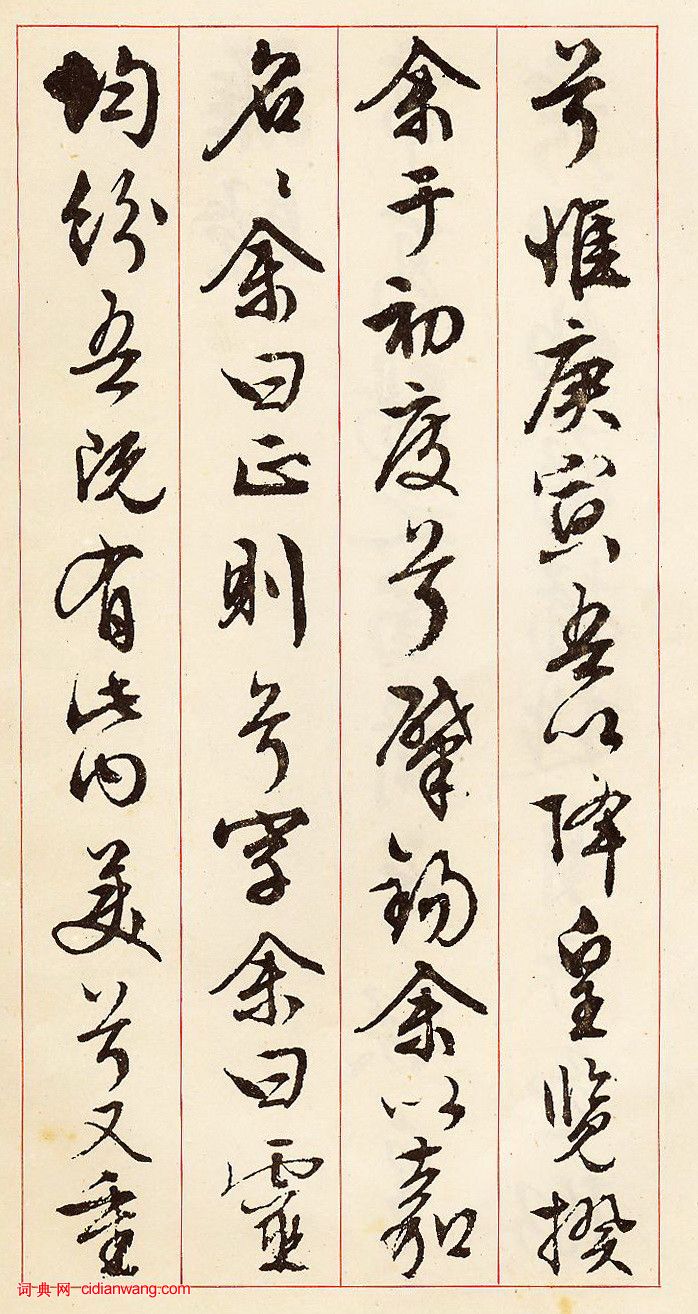 兮惟庚寅吾以降皇览揆
余于初度兮肇锡余以嘉
名〻余曰正则兮字余曰靈
均纷吾既有此内美兮又重
词典网-cidianwang.com